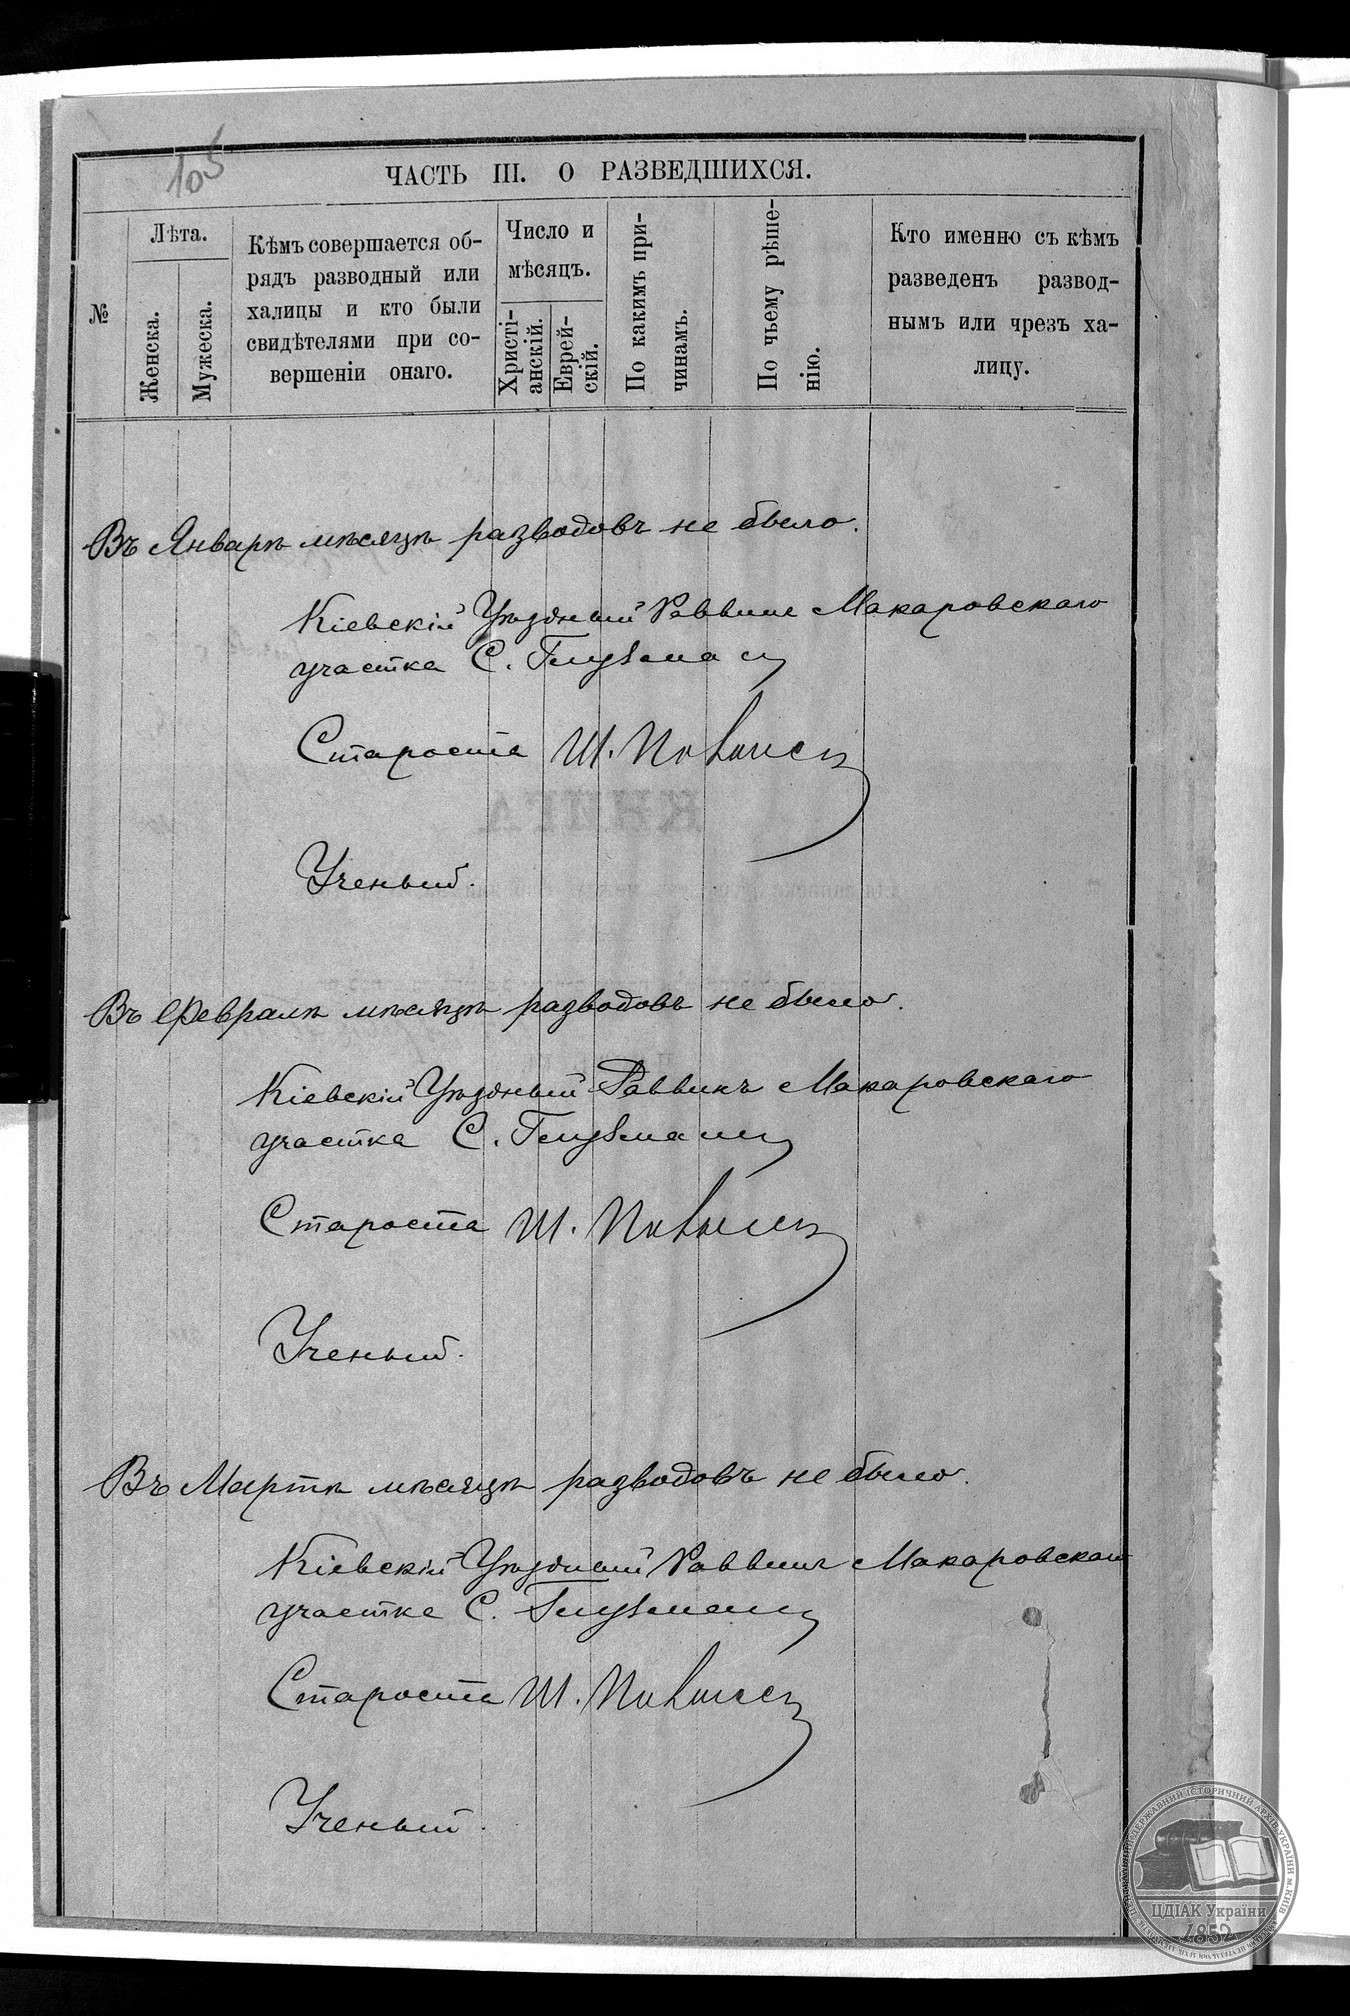 105
ЧАСТЬ III. О РАЗВЕДШИХСЯ.
№
Лѣта.
Женска.
Мужеска.
Кѣмъ совершается об-
рядъ разводный или
халицы и кто были
свидѣтелями при со-
вершеніи онаго.
Число и
мѣсяцъ.
Христі-
анскій.
Еврей-
скій.
По какимъ при-
чинамъ.
По чьему рѣше-
нію.
Кто именно съ кѣмъ
разведенъ развод-
нымъ или чрезъ ха-
лицу.
Въ Январѣ мѣсяцѣ разводовъ не было.
Кіевскій Уѣздный Раввинъ Макаровскаго
участка С. Глузман
Староста Ш.
Ученый.
КНИГА
Въ Февралѣ мѣсяцѣ разводовъ не было.
Кіевскій Уѣздный Раввинъ Макаровскаго
участка С. Глузман
Староста Ш.
Ученый.
Въ Мартѣ мѣсяцѣ разводовъ не было.
Кіевскій Уѣздный Раввинъ Макаровскаго
участка С. Глузман
Староста Ш.
Ученый.
ЦЕНТРАЛЬНИЙ ДЕРЖАВНИЙ ІСТОРИЧНИЙ АРХІВ УКРАЇНИ м. КИЇВ
ЦДІАК України
1852